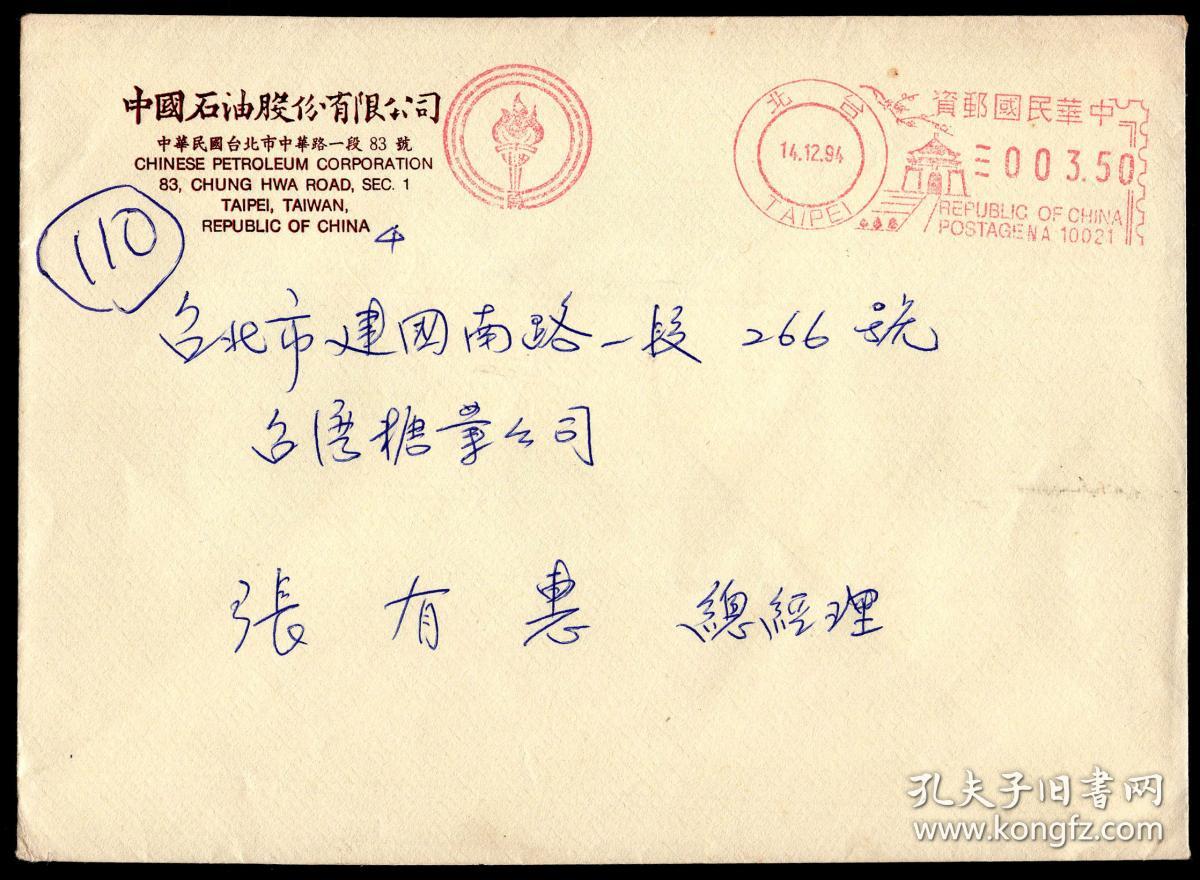 中國石油股份有限公司
中華民國台北市中華路一段 83 號
CHINESE PETROLEUM CORPORATION
83, CHUNG HWA ROAD, SEC. 1
TAIPEI, TAIWAN,
REPUBLIC OF CHINA
4
110
台北
14.12.94
TAIPEI
資郵國民華中
003.50
REPUBLIC OF CHINA
POSTAGE NA 10021
台北市建國南路一段 266 號
台湾糖業公司
張有惠 總經理
孔夫子旧书网
www.kongfz.com